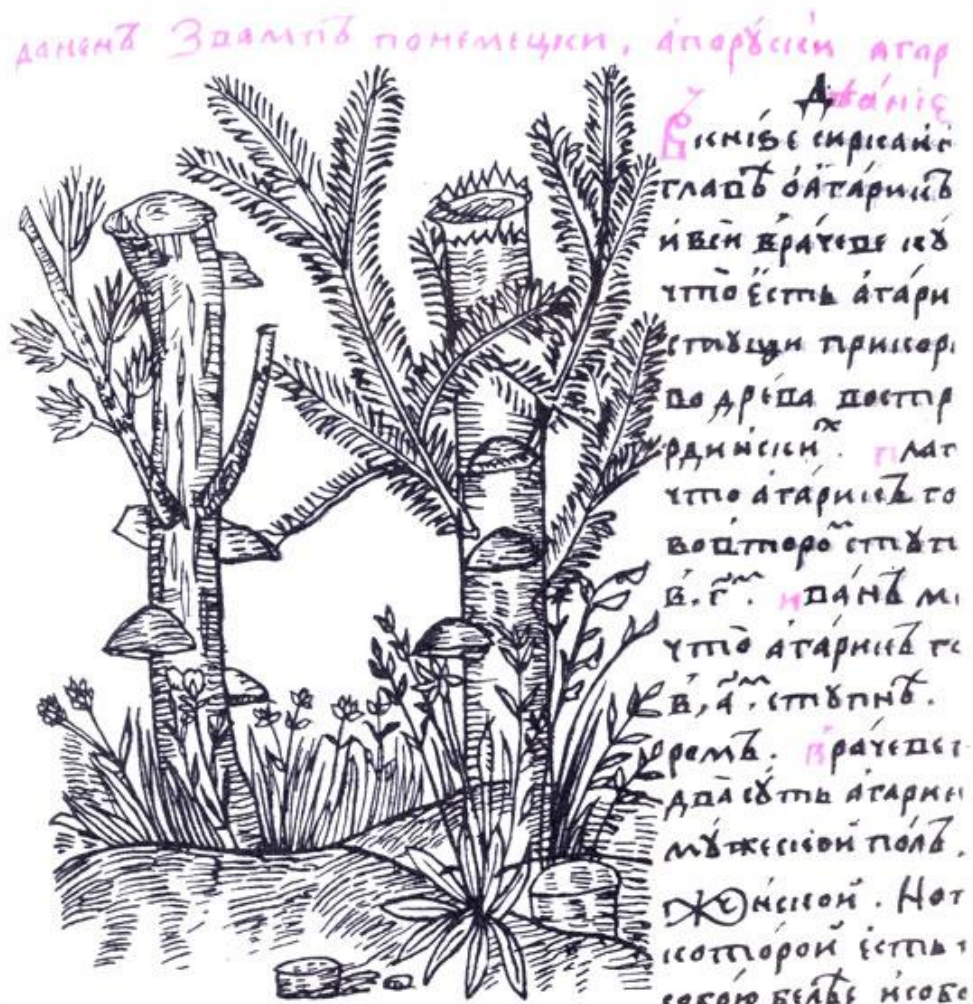 даненъ Звампъ понемецки, апорꙋскїи агар
Дѣанїе
Вкнізе сирскаїс
главъ ѻагарикъ
ивсн врачеве кꙋ
что есть агари
прикор
во древа востр
рдинскиⷯ. плат
что агарикъ го
воⷡторо ступ
в.г҃. иванъ м
что агарикъ го
в, а҃. ступнѣ.
ремъ. врачевст
два суть агарик
мꙋжескои полъ.
женскои. Нот
которои есть
собою белѣе исобо